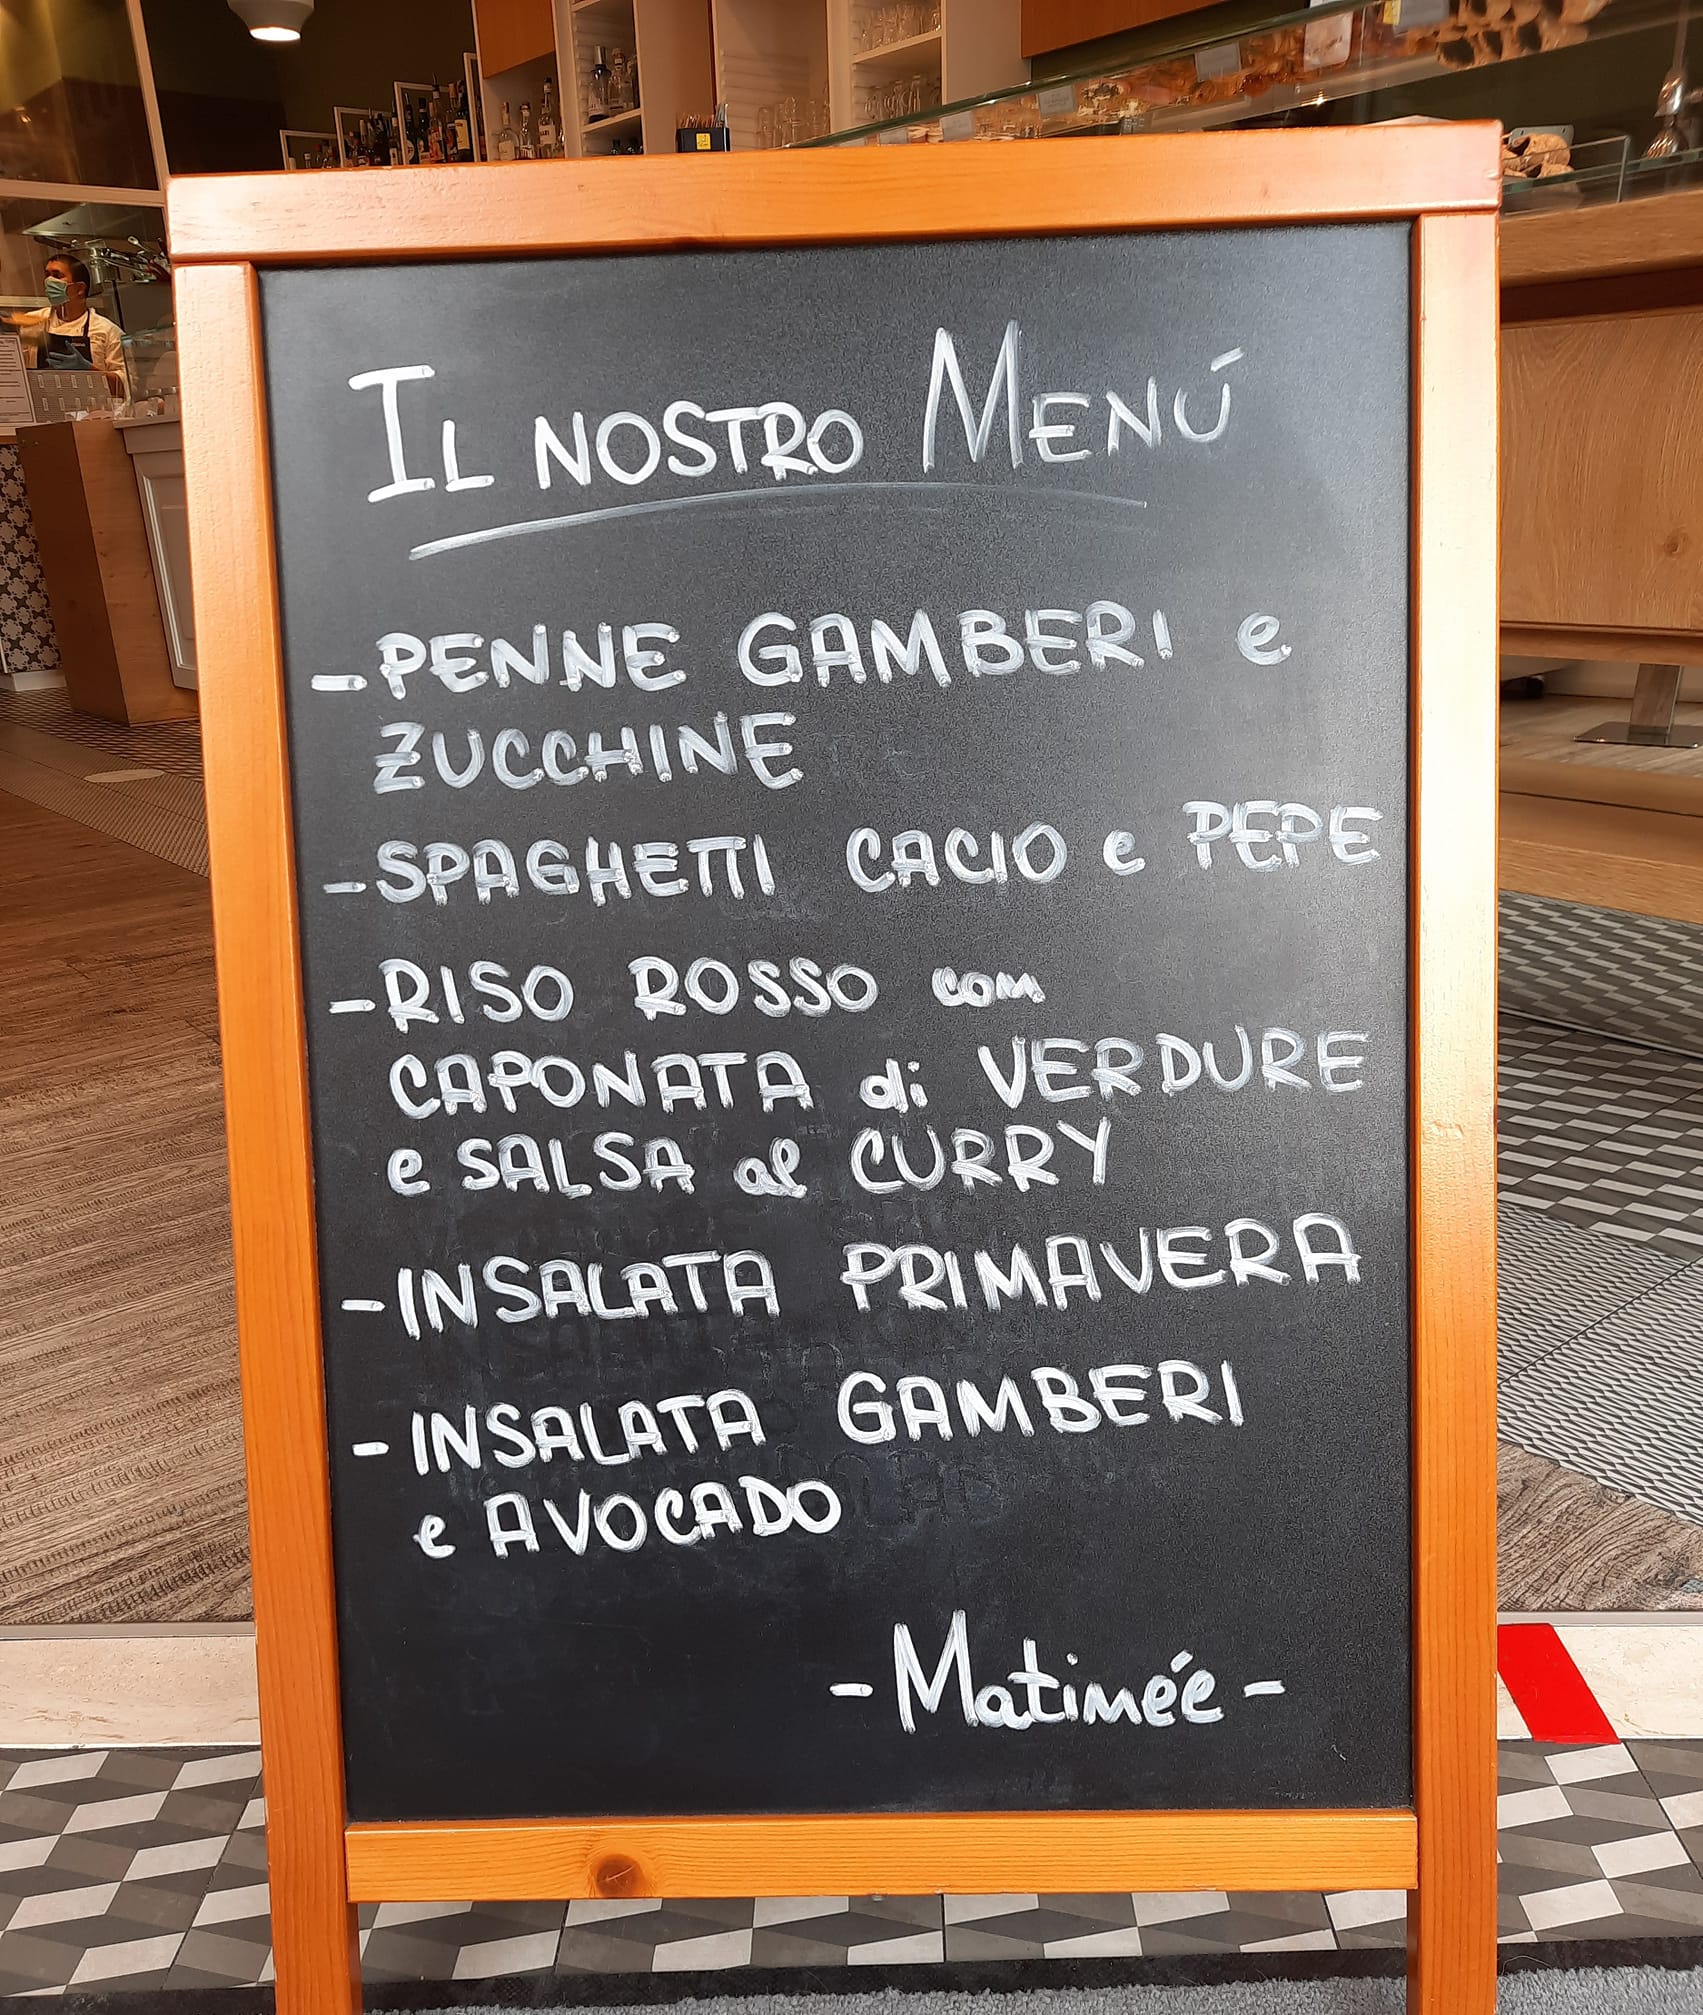 IL NOSTRO MENÚ
- PENNE GAMBERI e
ZUCCHINE
- SPAGHETTI CACIO e PEPE
- RISO ROSSO con
CAPONATA di VERDURE
e SALSA al CURRY
- INSALATA PRIMAVERA
- INSALATA GAMBERI
e AVOCADO
- Matineé -